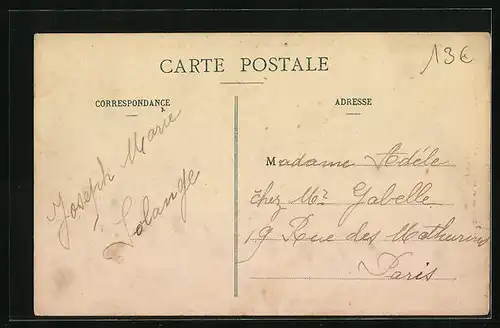 13€
CARTE POSTALE
CORRESPONDANCE
ADRESSE
Joseph Marie
Solange
Madame Adèle
chez Mr Gabelle
19 Rue des Mathurins
Paris